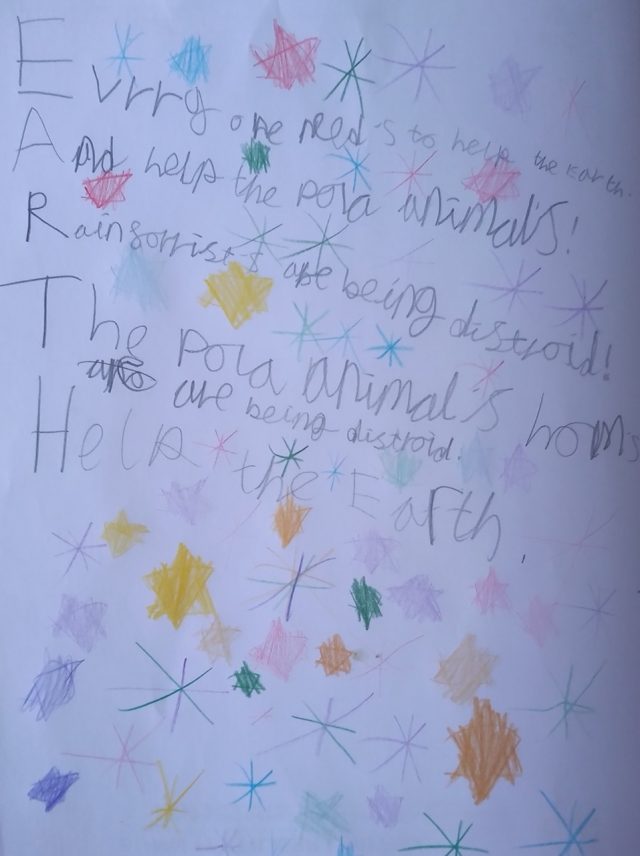 Evrryone need's to help the Earth.
And help the pola animal's!
Rainforrists are being distroid!
The pola animal's homs
are being distroid.
Help the Earth.